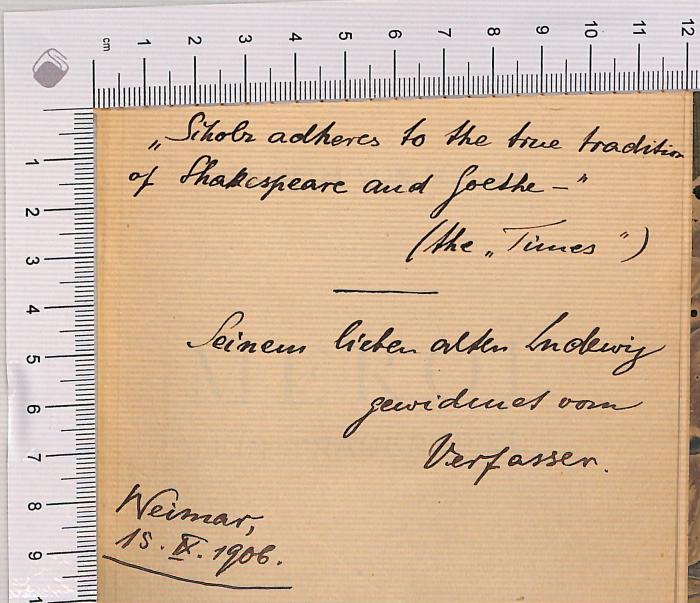 cm 1 2 3 4 5 6 7 8 9 10 11 12
1
2
3
4
5
6
7
8
9
1
„Scholz adheres to the true tradition
of Shakespeare and Goethe—"
(the „Times")
Seinem lieben alten Ludewig
gewidmet vom
Verfasser.
Weimar,
15. IX. 1906.